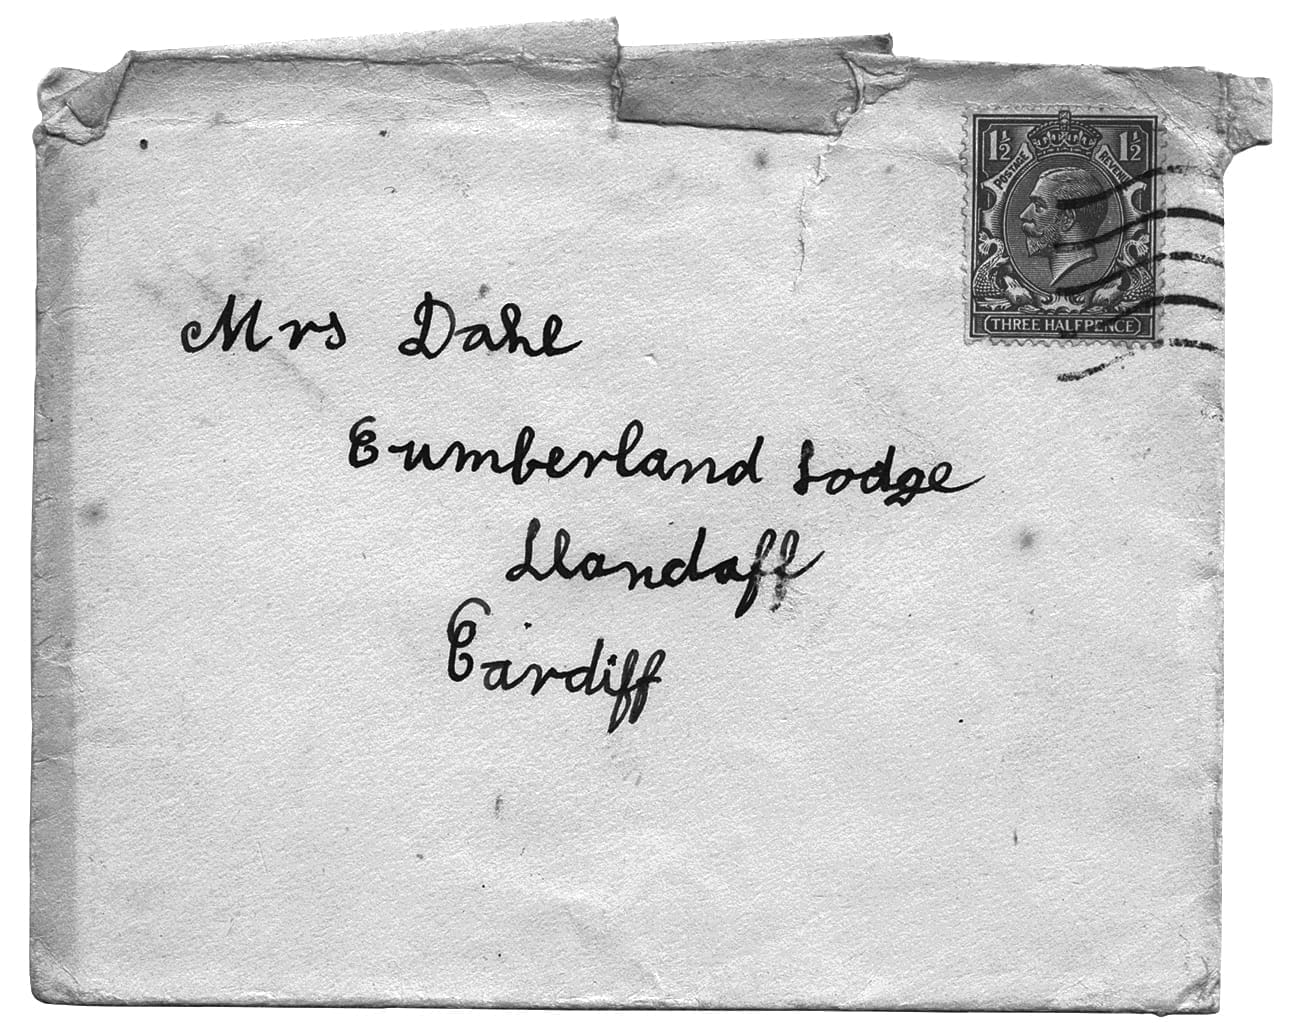 1½ 1½
POSTAGE REVENUE
THREE HALFPENCE
Mrs Dahl
Cumberland Lodge
Llandaff
Cardiff